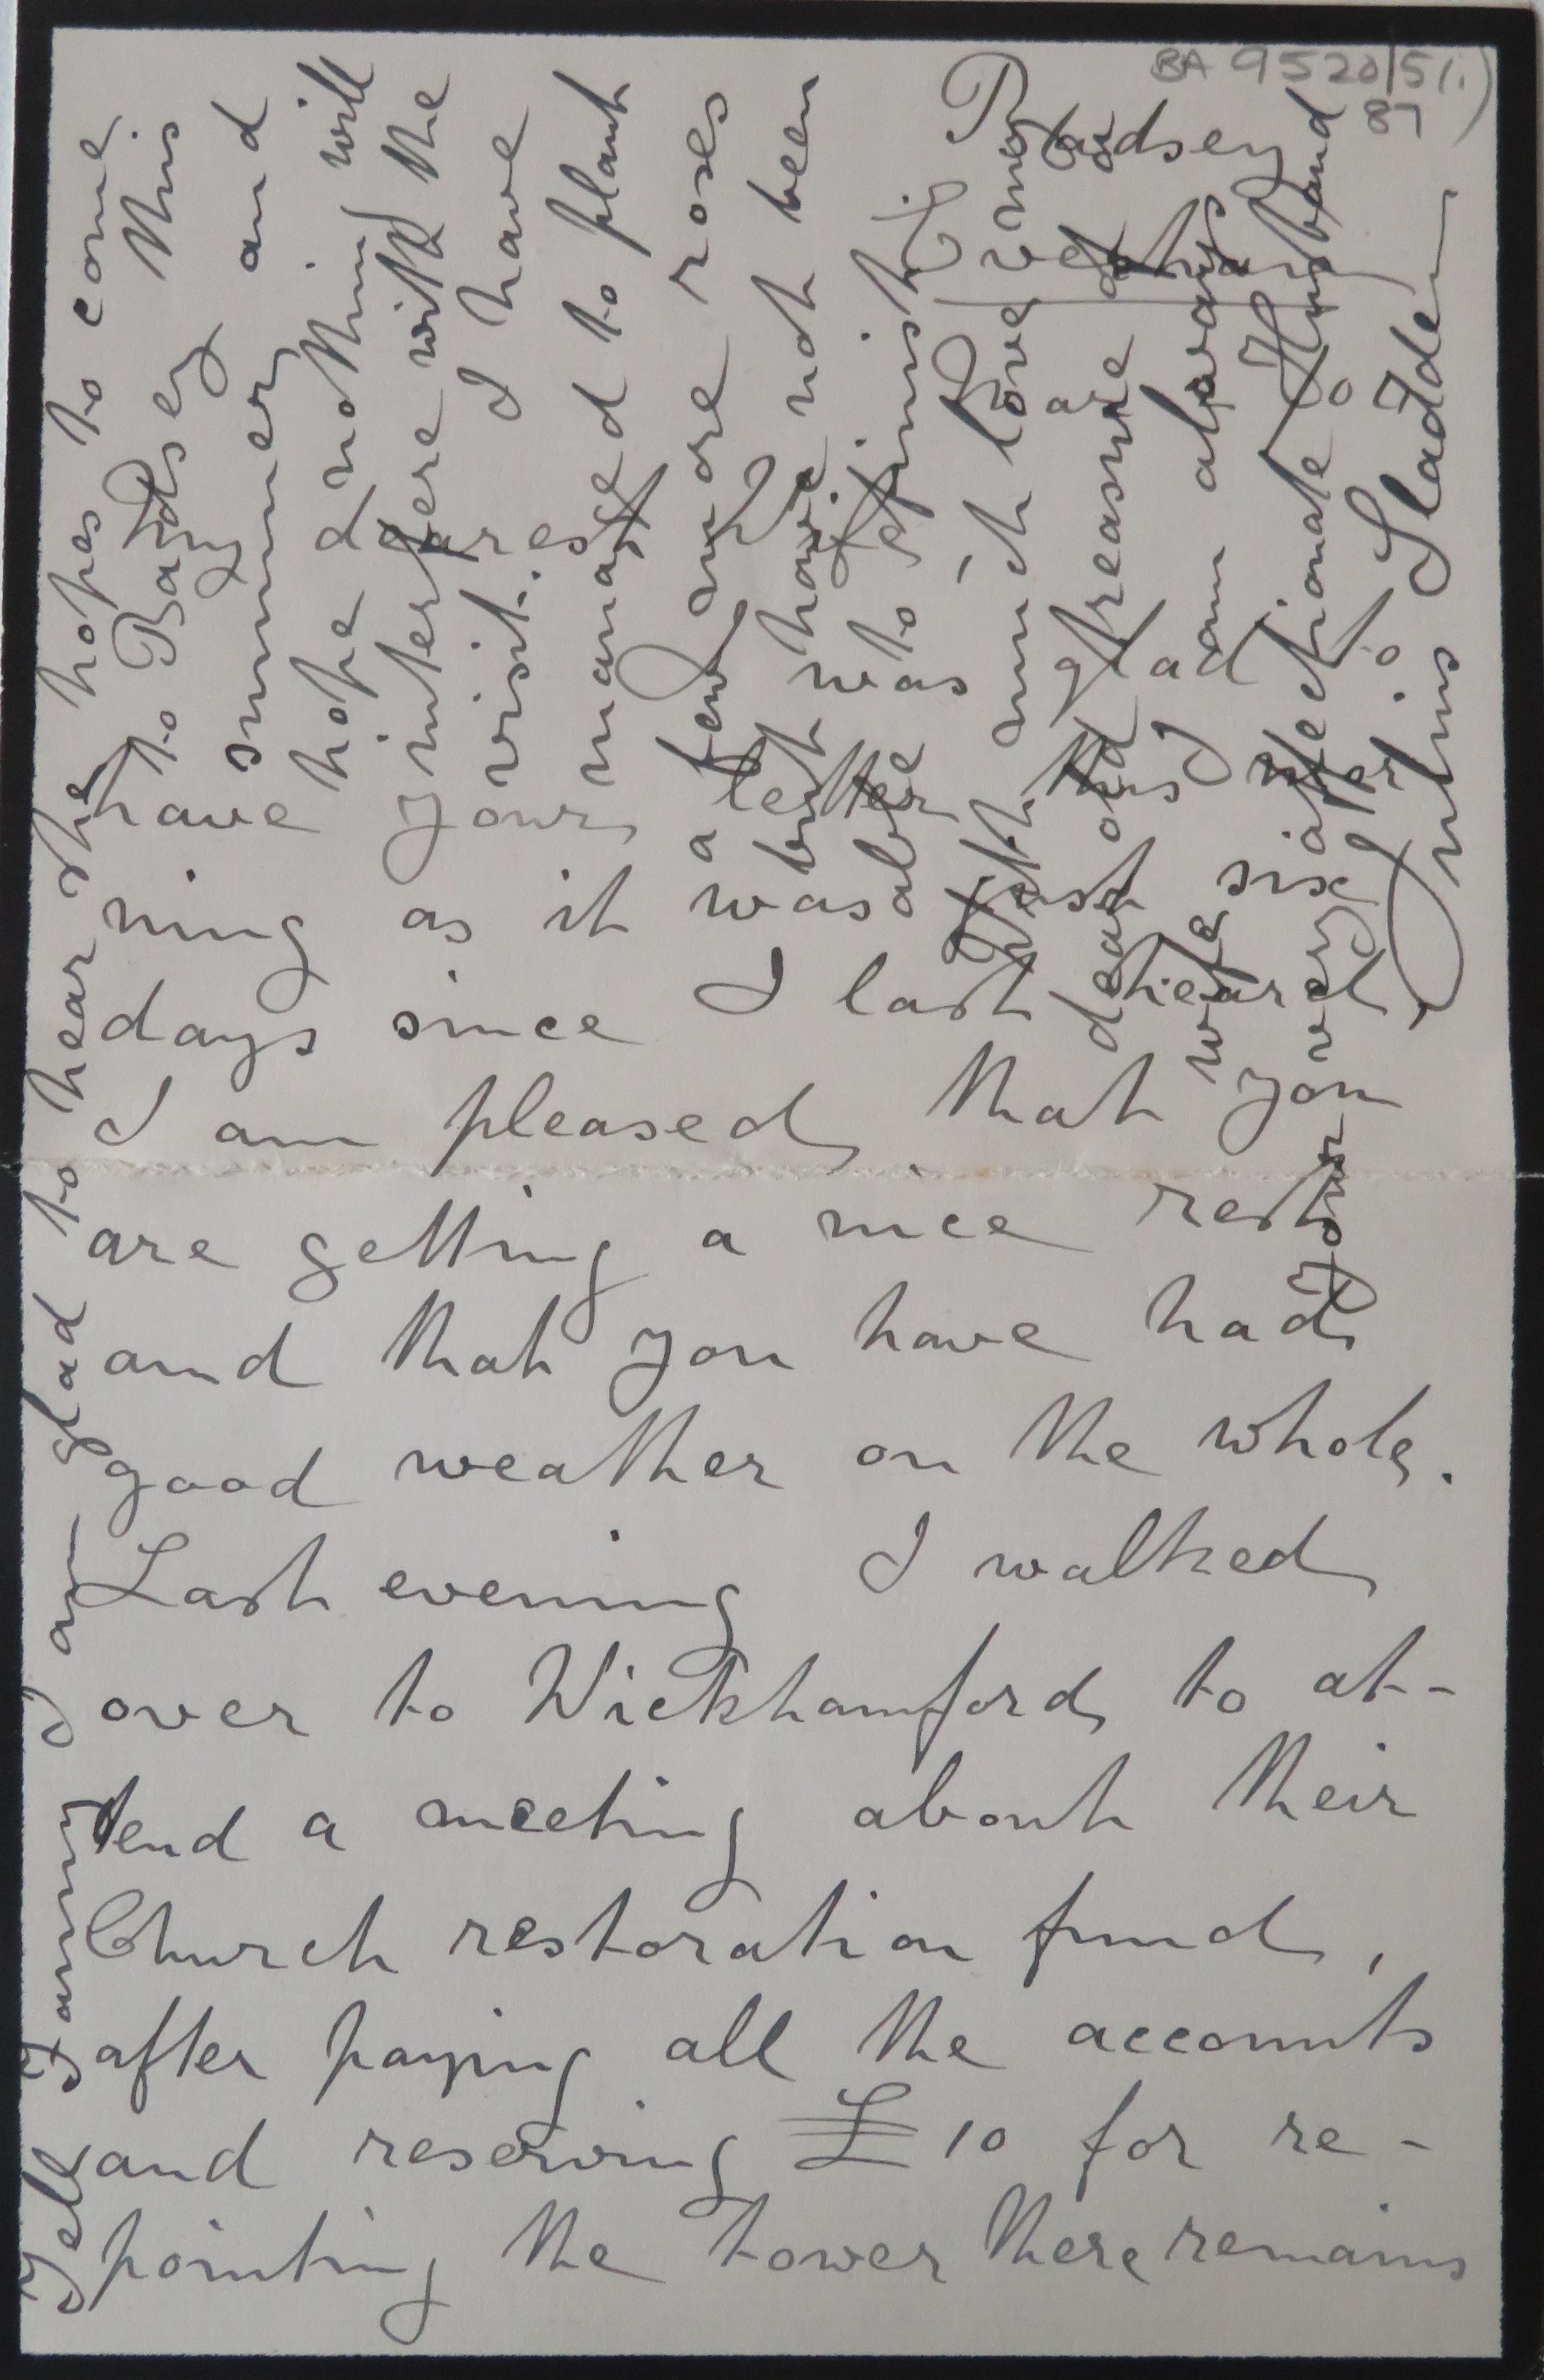 BA 9520/51.)
87
Badsey
dearest
was glad to
have your letter this mor-
ning as it was just six
days since I last heard
I am pleased that you
are getting a nice rest
and that you have had
good weather on the whole.
Last evening I walked
over to Wickhamford to at-
tend a meeting about their
Church restoration fund,
after paying all the accounts
and reserving £10 for re-
pointing the tower there remains
Tell Fanny I am glad to hear she hopes to come
to Badsey this
summer and
hope nothing will
interfere with the
visit. I have
managed to plant
a few more roses
but have not been
able to finish
With much love my
dear old treasure &
wife I am always
your very affectionate Husband
Julius Sladden